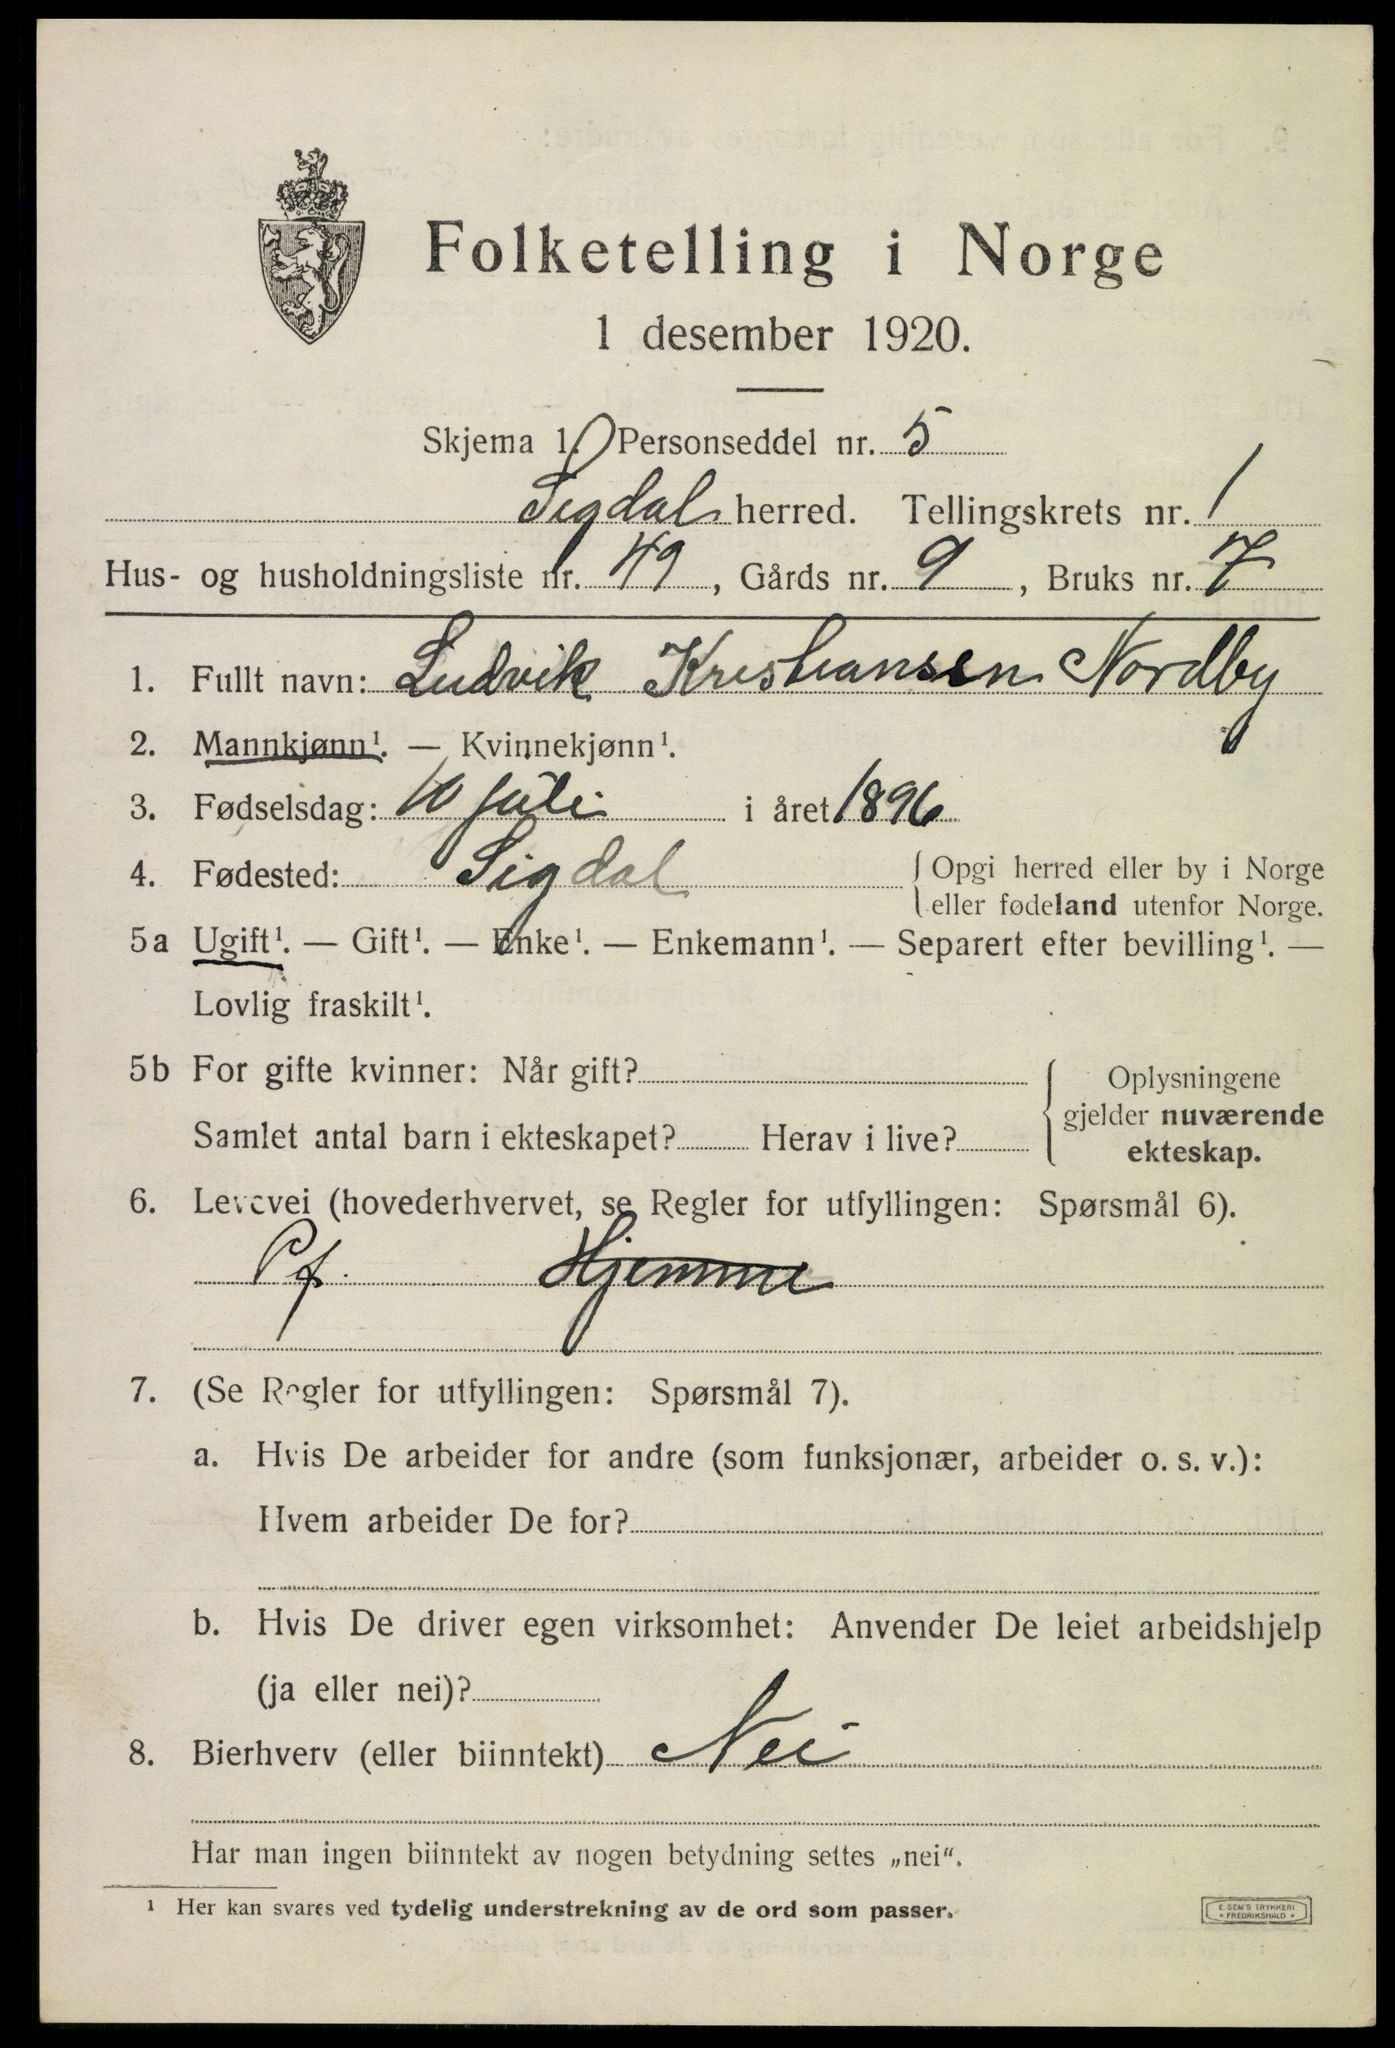 Folketelling i Norge
1 desember 1920.
Skjema 1. Personseddel nr. 5
Sigdal herred. Tellingskrets nr. 1
Hus- og husholdningsliste nr. 49, Gårds nr. 9, Bruks nr. 7
1. Fullt navn: Ludvik Kristiansen Nordby
2. Mannkjønn¹. — Kvinnekjønn¹.
3. Fødselsdag: 10 juli i året 1896
4. Fødested: Sigdal { Opgi herred eller by i Norge
eller fødeland utenfor Norge.
5a Ugift¹. — Gift¹. — Enke¹. — Enkemann¹. — Separert efter bevilling¹. —
Lovlig fraskilt¹.
5b For gifte kvinner: Når gift? { Oplysningene
gjelder nuværende
Samlet antal barn i ekteskapet? Herav i live?
ekteskap.
6. Levevei (hovederhvervet, se Regler for utfyllingen: Spørsmål 6).
Pf. Hjemme
7. (Se Regler for utfyllingen: Spørsmål 7).
a. Hvis De arbeider for andre (som funksjonær, arbeider o. s. v.):
Hvem arbeider De for?
b. Hvis De driver egen virksomhet: Anvender De leiet arbeidshjelp
(ja eller nei)?
8. Bierhverv (eller biinntekt) Nei
Har man ingen biinntekt av nogen betydning settes „nei“.
¹ Her kan svares ved tydelig understrekning av de ord som passer.
E. SEM'S TRYKKERI
* FREDRIKSHALD *